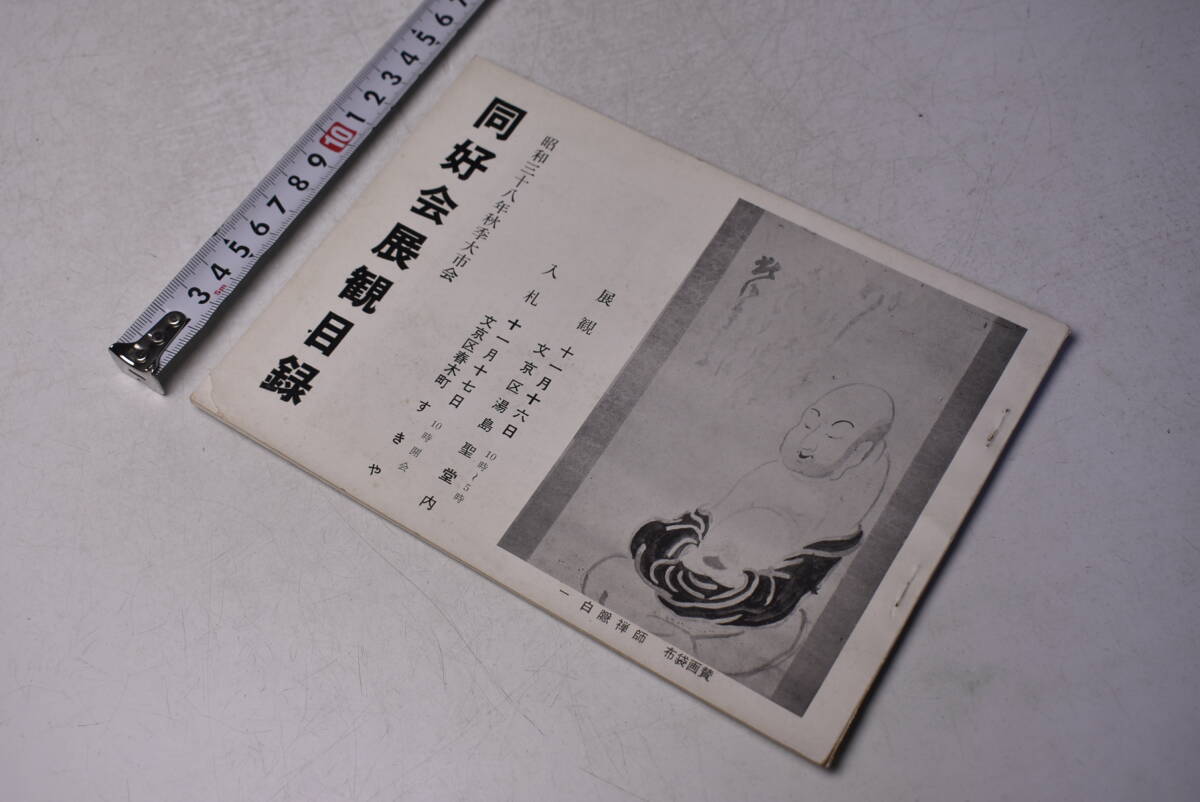 一 白隠禅師 布袋画賛
展観 十一月十六日 10時〜5時
文京区湯島 聖堂内
入札 十一月十七日 10時開会
文京区春木町 すきや
昭和三十八年秋季大市会
同好会展観目録
3 4 5 6 7 8 9 10 1 2 3 4 5 6 7
5m